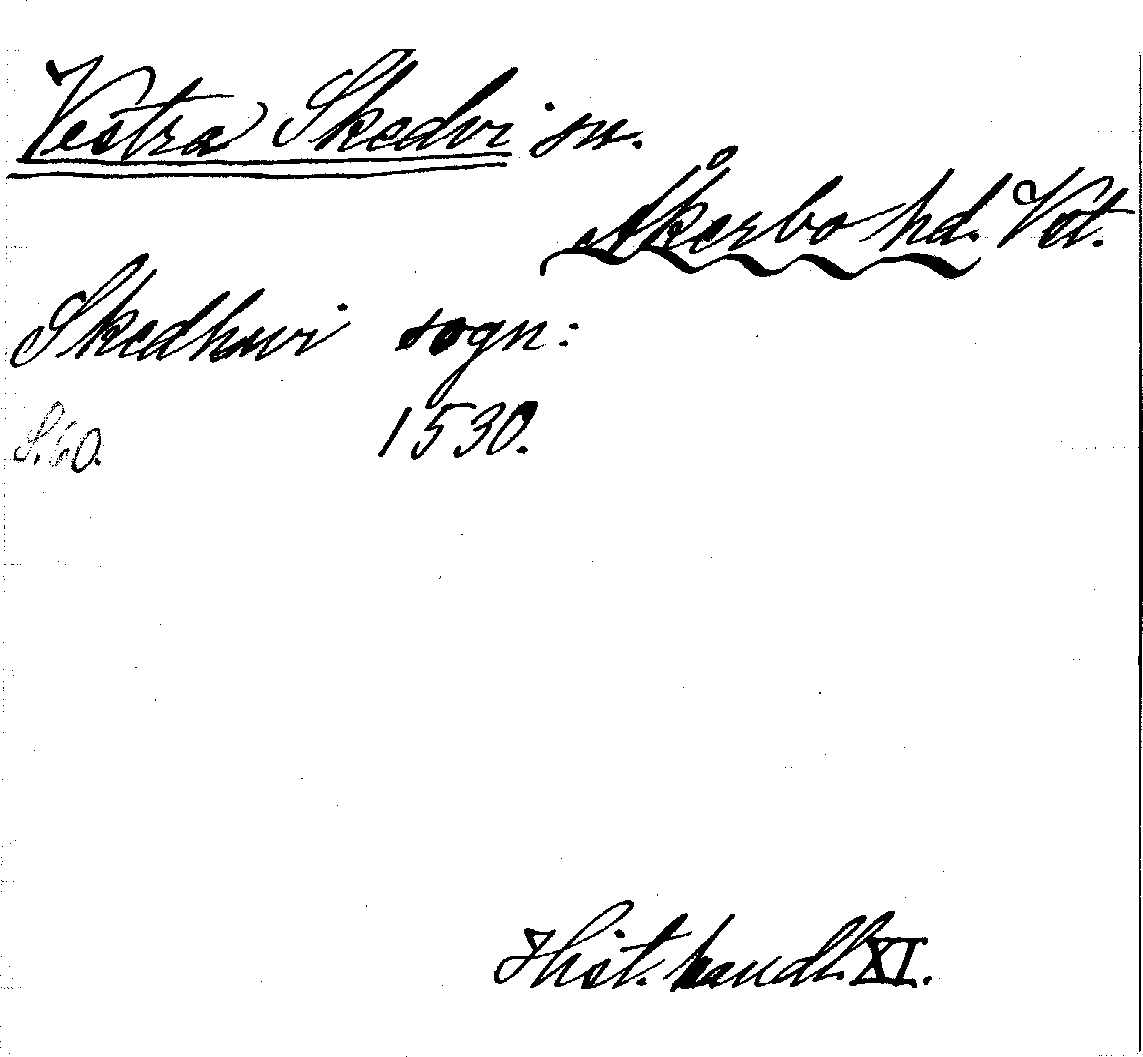 Vestra Skedvi sn.
Åkerbo hd. Vst.
Skedhwi sogn:
S. 60. 1530.
Hist. handl. XI.